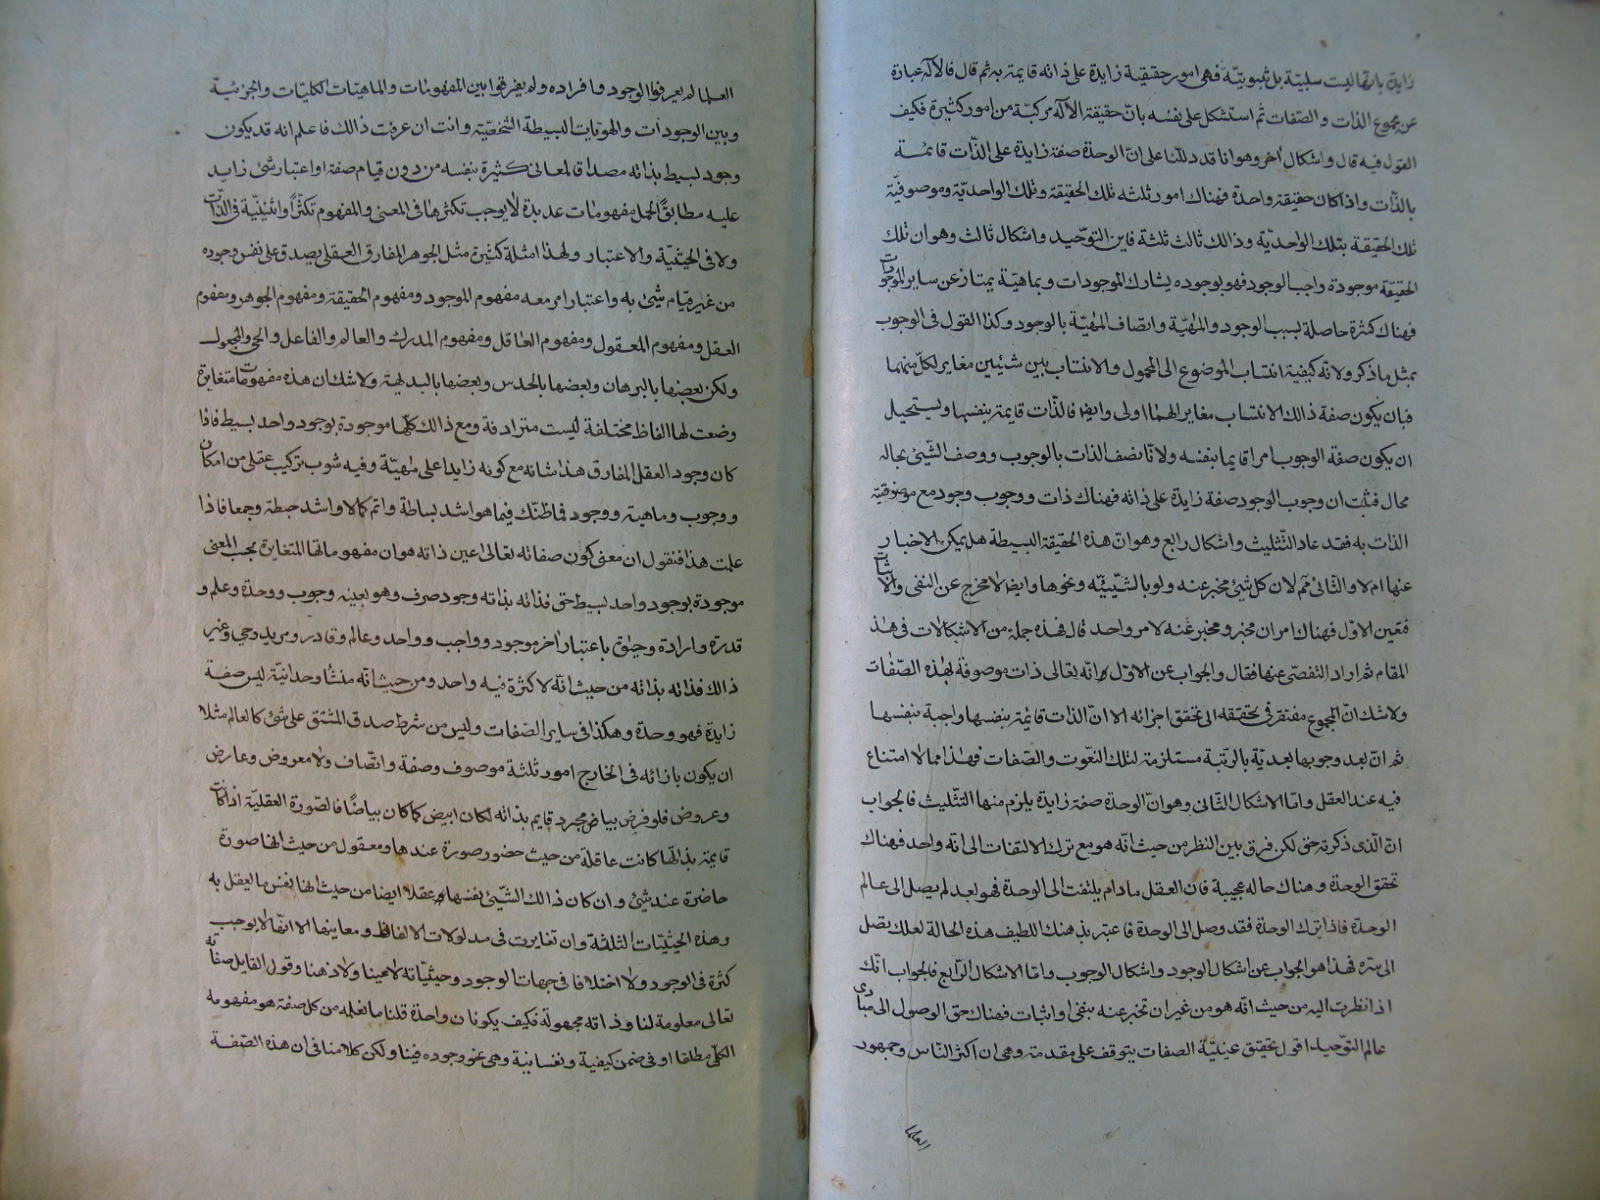 زايدة بانها ليست سلبيّة بل ثبوتيّة فهى امور حقيقية زايدة على ذاته قايمة به ثم قال فالاله عبارة
عن مجموع الذات و الصّفات ثم استشكل على نفسه بانّ حقيقة الاله مركبّة من امور كثيرة فكيف
القول فيه قال و اشكال اخر وهو انا قد دللنا على انّ الوحدة صفة زايدة على الذّات قائمة
بالذّات و اذا كان حقيقة واحدة فهناك امور ثلثه تلك الحقيقة و تلك الواحديّة و موصوفيّة
تلك الحقيقة بتلك الواحديّة و ذالك ثالث ثلثة فاين التوحّيد و اشكال ثالث و هو ان تلك
الحقيقة موجودة و اجب الوجود فهو بوجوده يشارك الموجودات و بماهيّة يمتاز عن ساير الموجودات
فهناك كثرة حاصلة بسبب الوجود و المهيّة و اتصاف المهيّة بالوجود و كذا القول فى الوجوب
بمثل ما ذكر و لانّه كيفية انتساب الموضوع الى المحمول و الانتساب بين شيئين مغاير لكلّ منهما
فبان يكون صفة ذالك الانتساب مغاير الهما اولى و ايضا فالذّات قايمة بنفسها و يستحيل
ان يكون صفة الوجوب امرا قايما بنفسه و لانّا نصف الذات بالوجوب و وصف الشّيئ بحاله
محال فثبت ان وجوب الوجود صفة زايدة على ذاته فهناك ذات و وجوب وجود مع موصوفية
الذات به فقد عاد التّثليث و اشكال رابع و هو انّ هذه الحقيقة البسيطة هل يمكن الاخبار
عنها ام لا و الثّانى مم لان كل شيئ مخبر عنه و لو بالشّيئيّه و نحوها و ايضا لا مخرج عن النفى و الاثبات
فتعين الاول فهناك امران مخبر و مخبر عنه لامر واحد قال فهذه جملة من الاشكالات فى هذ
المقام ثم اراد التفصّى عنها فقال و الجواب عن الاوّل انّه تعالى ذات موصوفة بهذه الصّفات
و لا شك انّ المجموع مفتقر فى تحققه الى تحقق اجزائه الا انّ الذات قايمة بنفسها واجبة بنفسها
ثم انّ بعد وجوبها بعديّة بالرّتبة مستلزمة لتلك النعّوت و الصّفات فهذا مما لا امتناع
فيه عند العقل و امّا الاشكال الثّانى و هو انّ الوحدة صفة زايدة يلزم منها التّثليث فالجواب
انّ الّذى ذكرته حق لكن فرق بين النظر من حيث انّه هو مع ترك الالتفات الى انه واحد فهناك
تحقق الوحدة و هناك حاله عجيبة فان العقل مادام يلتفت الى الوحدة فهو بعد لم يصل الى عالم
الوحدة فاذا ترك الوحدة فقد وصل الى الوحدة فاعتبر بذهنك اللطيف هذه الحالة لعلك تصل
الى سرّه فهذا هو الجواب عن اشكال الوجود و اشكال الوجوب و امّا الاشكال الرّابع فالجواب انّك
اذا نظرت اليه من حيث انّه هو من غير ان تخبر عنه بنفى او اثبات فهناك حق الوصول الى مبادى
عالم التوحّيد اقول تحقيق عينيّة الصفات يتوقف على مقدمة و هى ان اكثر النّاس و جمهور
العلما
العلما لم يعرفوا الوجود و افراده و لم يفرقوا بين المفهومات و الماهيّات الكليّات و الجزئيّة
و بين الوجودات و الهويّات البسيطة الشّخصّية و انت ان عرفت ذالك فاعلم انه قد يكون
وجود بسيط بذاته مصداقا لمعانى كثيرة بنفسه من دون قيام صفة او اعتبار شئ زايد
عليه مطابقًا لحمل مفهومات عديدة لا يوجب تكثرها فى المعنى و المفهوم تكثّرًا و اثنينيّة فى الذّات
و لا فى الحيثيّة و الاعتبار و لهذا امثلة كثيرة مثل الجوهر المفارق العقلى يصدق على نفس وجوده
من غير قيام شئ به و اعتبار امر معه مفهوم الموجود و مفهوم الحقيقة و مفهوم الجوهر و مفهوم
العقل و مفهوم المعقول و مفهوم العاقل و مفهوم المدرك و العالم و الفاعل و الحى و المجعول
و لكن بعضها بالبرهان و بعضها بالحدس و بعضها بالبديهة و لا شك ان هذه مفهومات متغايرة
وضعت لها الفاظ مختلفة ليست مترادفة و مع ذالك كلّها موجودة بوجود واحد بسيط فاذا
كان وجود العقل المفارق هذا شانه مع كونه زايدا على مهيّة و فيه شوب تركيب عقلى من امكان
و وجوب و ماهية و وجود فما ظنّك فيما هو اشد بساطة و اتم كمالا و اشد حيطة و جمعا فاذا
علمت هذا فنقول ان معنى كون صفاته تعالى عين ذاته هو ان مفهوماتها المتغايرة بحسب المعنى
موجودة بوجود واحد بسيط حتى فذاته بذاته وجود صرف و هو بعينه وجوب و وحدة و علم و
قدرة و ارادة و حيوة باعتبار اخر موجود و واجب و واحد و عالم و قادر و مريد و حى و غير
ذالك فذاته بذاته من حيث انّه لا كثرة فيه واحد و من حيث انّه منشأ وحدانيّة ليس صفة
زايدة فهو وحدة و هكذا فى ساير الصّفات و ليس من شرط صدق المشتق على شئ كالعالم مثلا
ان يكون بازائه فى الخارج امور ثلثة موصوف و صفة و اتصّاف و لا معروض و عارض
و عروض فلو فرض بياض مجرد قايم بذاته لكان ابيض كما كان بياضًا فالصّورة العقليّة اذا كانت
قايمة بذاتها كانت عاقلة من حيث حضور صورة عندها و معقول من حيث انها صورة
حاضرة عند شيئ و ان كان ذالك الشّيئ نفسها و عقلا ايضا من حيث انها نفس ما يعقل به
و هذه الحيثيّات الثلثة و ان تغايرت فى مدلولات الالفاظ و معاينها الا انهّا لا يوجب
كثرة فى الوجود و لا اختلافا فى جهات الوجود و حيثيّاته لا عينا و لا ذهنا و قول القايل صفاته
تعالى معلومة لنا و ذاته مجهولة فكيف يكونان واحدة قلنا ما نعلمه من كل صفة هو مفهومه
الكلّى مطلقا او فى ضمن كيفية و نفسانية و هى نحو وجوده فينا و لكن كلامنا فى ان هذه الصّفة